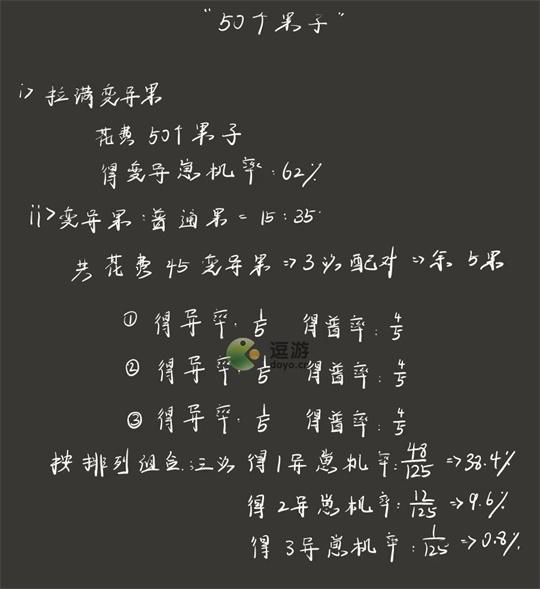 "50个果子"
i> 拉满变异果
花费 50个果子
得变异崽机率:62%
ii>变异果:普通果 = 15:35
共花费 45 变异果 => 3次配对 => 余 5果
① 得异率: 1/5 得普率: 4/5
逗游
doyo.cn
② 得异率: 1/5 得普率: 4/5
③ 得异率: 1/5 得普率: 4/5
按排列组合:三次 得1异崽机率: 48/125 => 38.4%
得2异崽机率: 12/125 => 9.6%
得3异崽机率: 1/125 => 0.8%